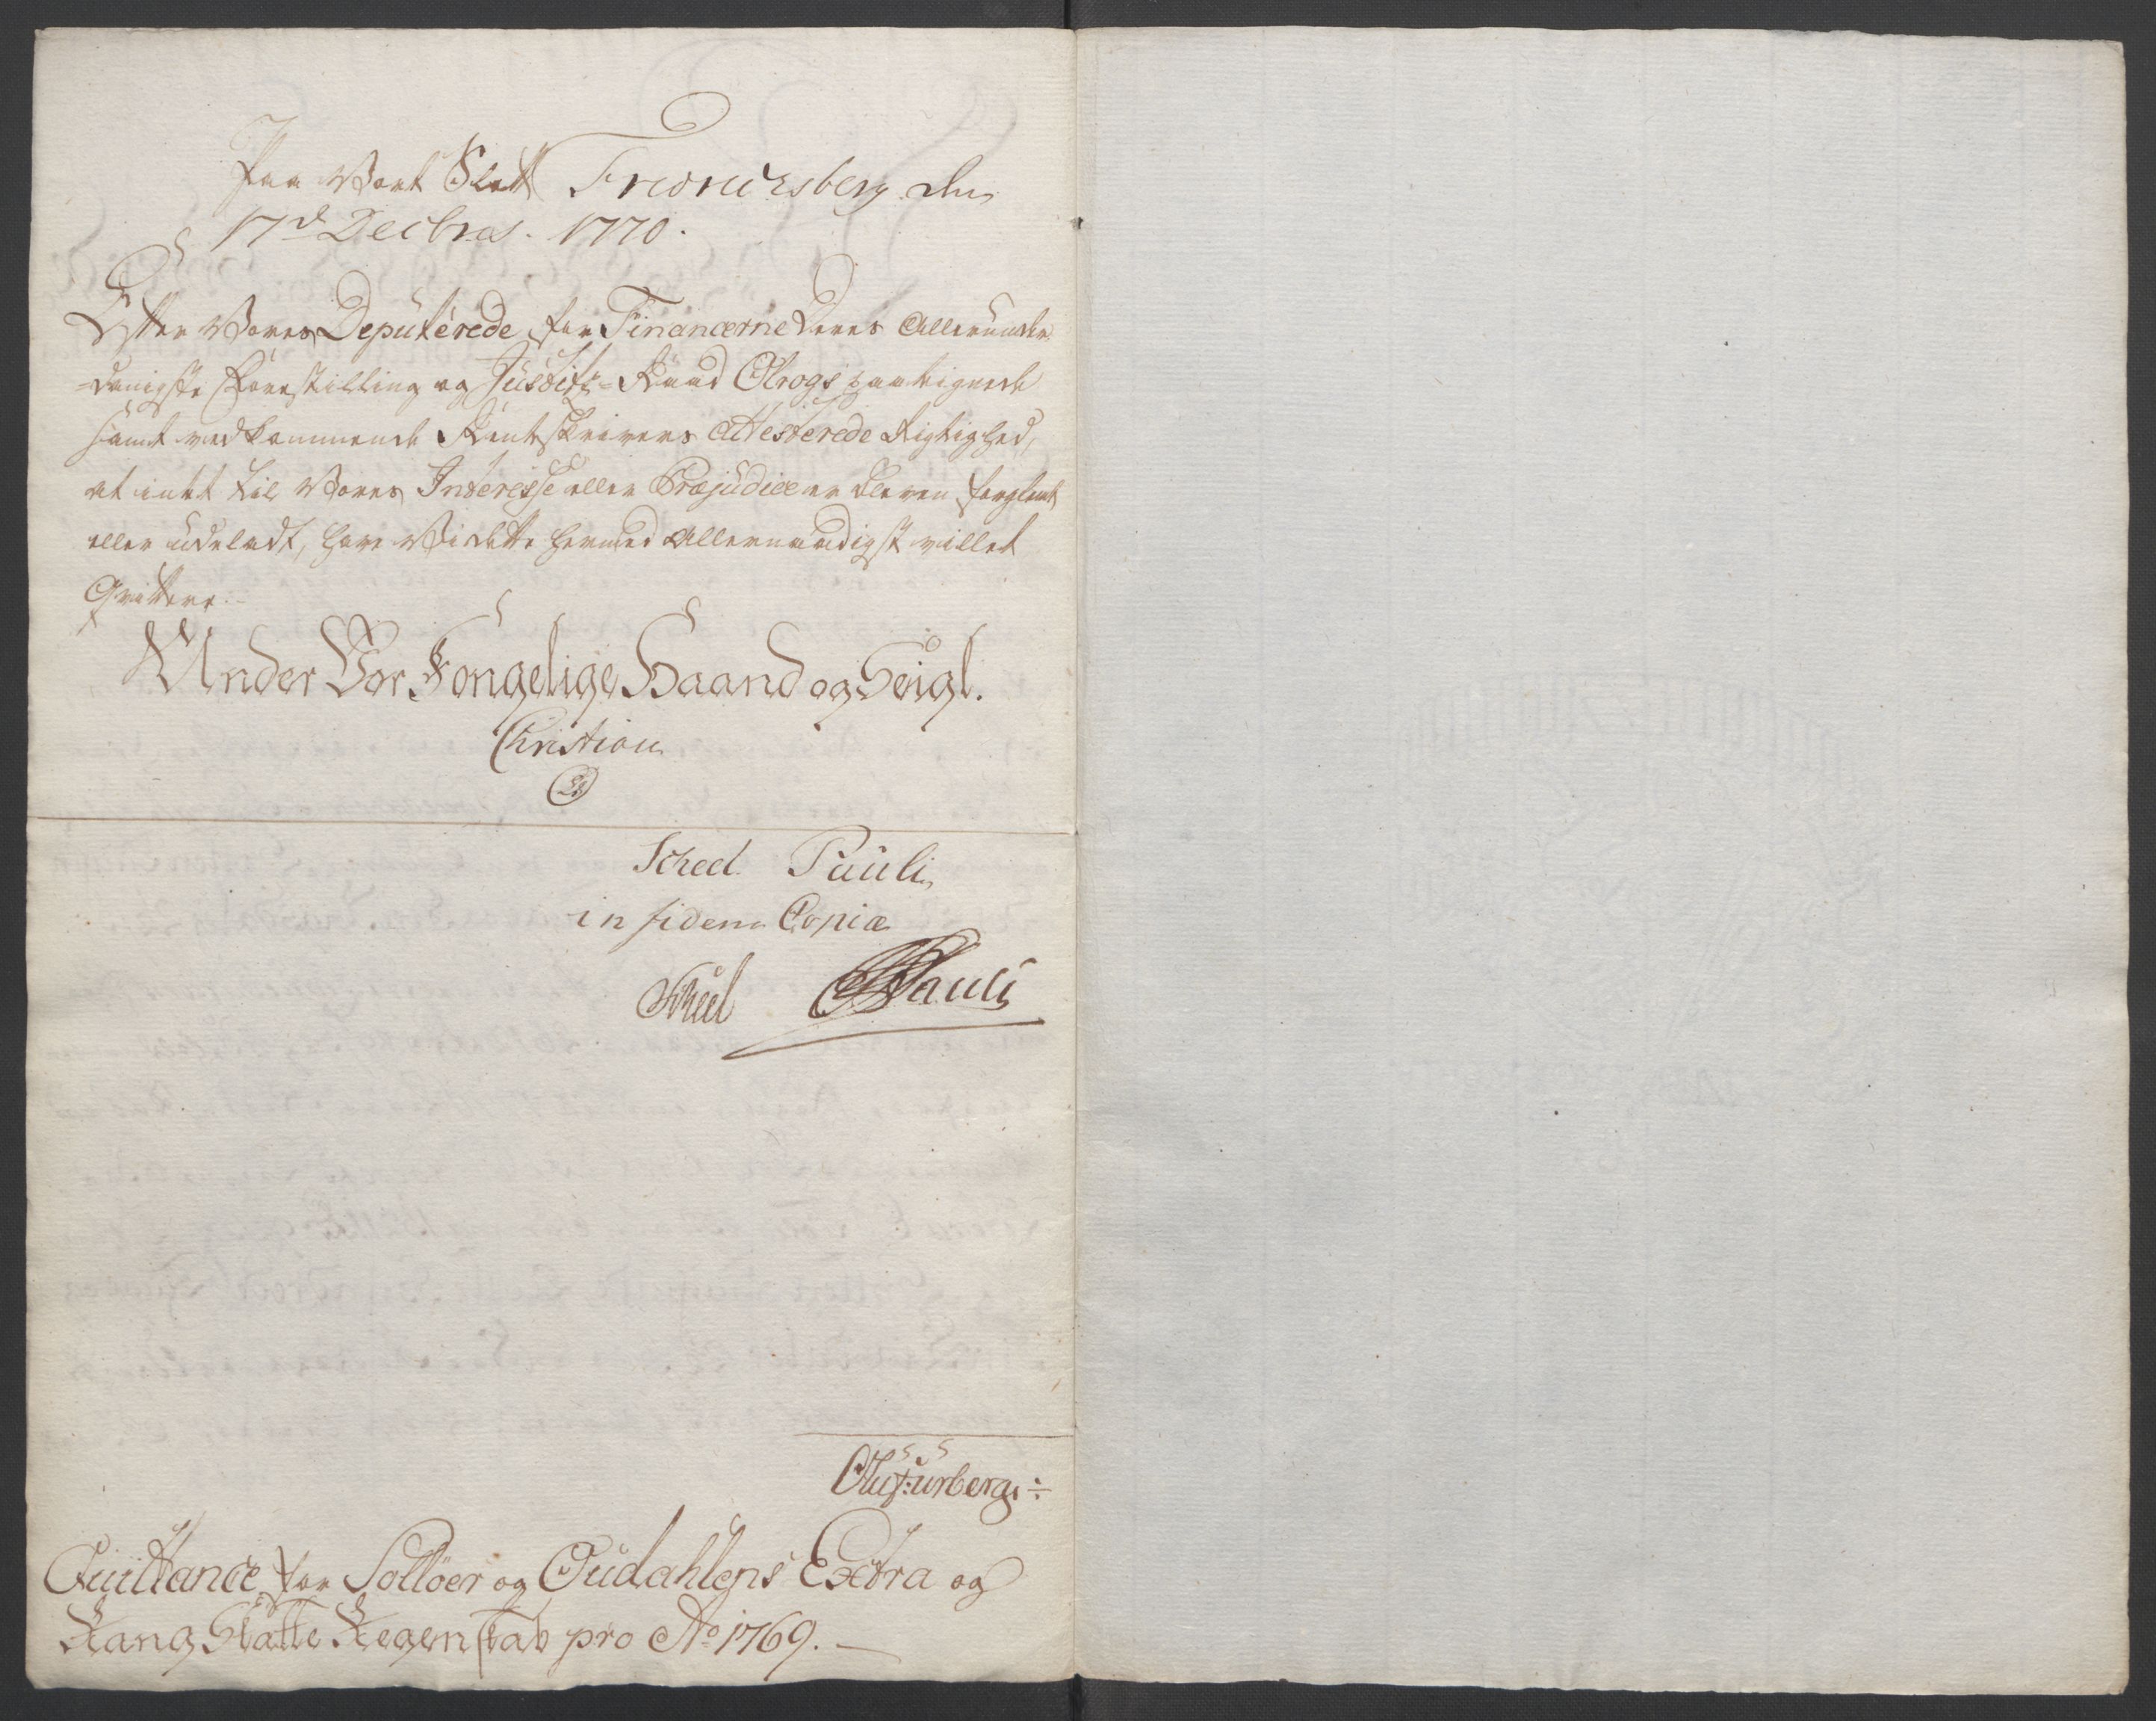 Paa Vort Slott Friderichsberg den
17d Decbris. 1770.
Efter Vores Deputerede for Financerne deres Allerunder-
=danigste Forestilling og Justitz=Raad Olrogs paategnede
samt vedkommende Rentskrivers attesterede Rigtighed,
at intet til Vores Interesse eller Præjudice er bleven forglemt
eller udeladt, have Vi dette hermed Allernaadigst villet
Qvittere.
Under Vor Kongelige Haand og Seigl.
Christian
Scheel Pauli
in fidem Copiæ
Scheel Pauli
Quittance for Solløer og Oudahlens Extra og
Rang Skatte Regenskab pro Ao 1769.